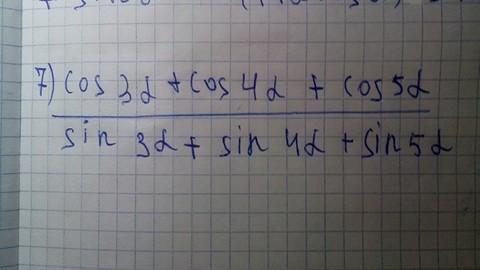 7) cos 3α + cos 4α + cos 5α
sin 3α + sin 4α + sin 5α